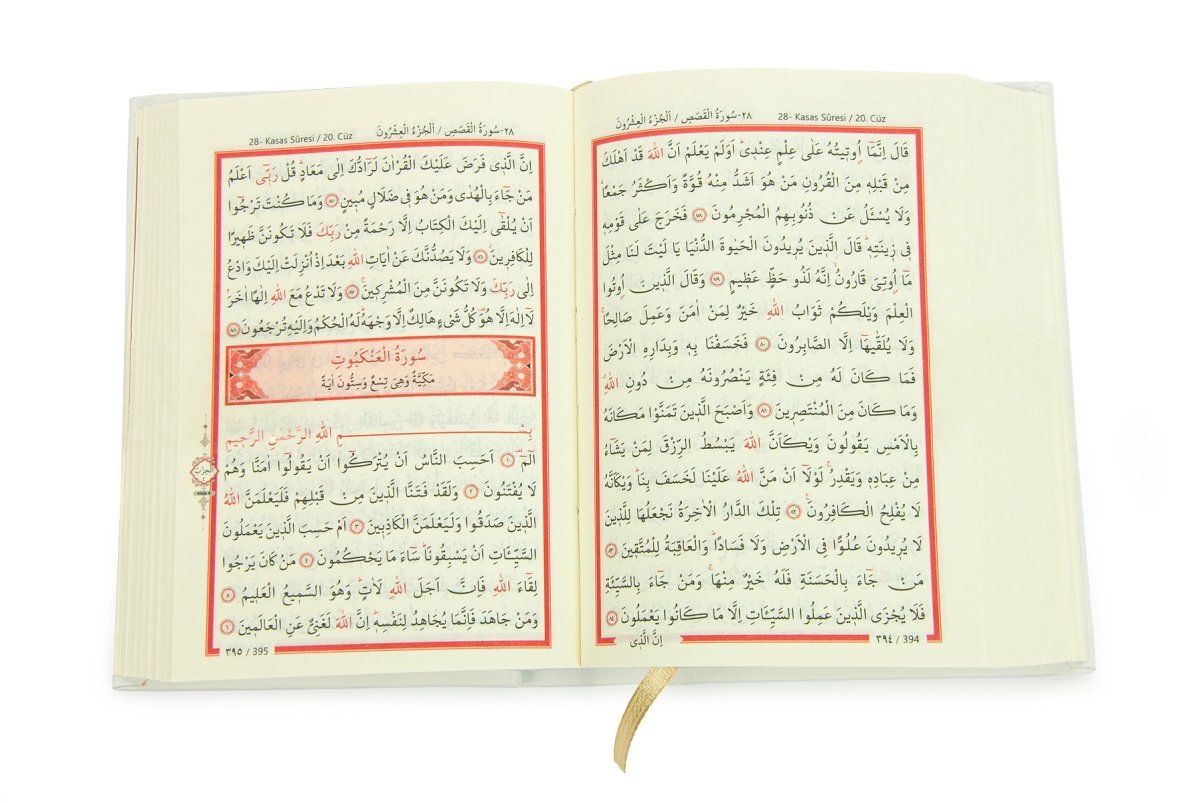 ٢٨-سُورَةُ الْقَصَصِ / اَلْجُزْءُ الْعِشْرُونَ 28- Kasas Sûresi / 20. Cüz
قَالَ اِنَّمَٓا اُو۫ت۪يتُهُ عَلٰى عِلْمٍ عِنْد۪يۜ اَوَلَمْ يَعْلَمْ اَنَّ اللّٰهَ قَدْ اَهْلَكَ
مِنْ قَبْلِه۪ مِنَ الْقُرُونِ مَنْ هُوَ اَشَدُّ مِنْهُ قُوَّةً وَاَكْثَرُ جَمْعًاۜ
وَلَا يُسْـَٔلُ عَنْ ذُنُوبِهِمُ الْمُجْرِمُونَ ٧٨ فَخَرَجَ عَلٰى قَوْمِه۪
ف۪ي ز۪ينَتِه۪ۜ قَالَ الَّذ۪ينَ يُر۪يدُونَ الْحَيٰوةَ الدُّنْيَا يَا لَيْتَ لَنَا مِثْلَ
مَٓا اُو۫تِيَ قَارُونُۙ اِنَّهُ لَذُو حَظٍّ عَظ۪يمٍ ٧٩ وَقَالَ الَّذ۪ينَ اُو۫تُوا
الْعِلْمَ وَيْلَكُمْ ثَوَابُ اللّٰهِ خَيْرٌ لِمَنْ اٰمَنَ وَعَمِلَ صَالِحًاۚ
وَلَا يُلَقّٰيهَٓا اِلَّا الصَّابِرُونَ ٨٠ فَخَسَفْنَا بِه۪ وَبِدَارِهِ الْاَرْضَ
فَمَا كَانَ لَهُ مِنْ فِئَةٍ يَنْصُرُونَهُ مِنْ دُونِ اللّٰهِ
وَمَا كَانَ مِنَ الْمُنْتَصِر۪ينَ ٨١ وَاَصْبَحَ الَّذ۪ينَ تَمَنَّوْا مَكَانَهُ
بِالْاَمْسِ يَقُولُونَ وَيْكَاَنَّ اللّٰهَ يَبْسُطُ الرِّزْقَ لِمَنْ يَشَٓاءُ
مِنْ عِبَادِه۪ وَيَقْدِرُۚ لَوْلَٓا اَنْ مَنَّ اللّٰهُ عَلَيْنَا لَخَسَفَ بِنَاۜ وَيْكَاَنَّهُ
لَا يُفْلِحُ الْكَافِرُونَ۟ ٨٢ تِلْكَ الدَّارُ الْاٰخِرَةُ نَجْعَلُهَا لِلَّذ۪ينَ
لَا يُر۪يدُونَ عُلُوًّا فِي الْاَرْضِ وَلَا فَسَادًاۜ وَالْعَاقِبَةُ لِلْمُتَّق۪ينَ ٨٣
مَنْ جَٓاءَ بِالْحَسَنَةِ فَلَهُ خَيْرٌ مِنْهَاۚ وَمَنْ جَٓاءَ بِالسَّيِّئَةِ
فَلَا يُجْزَى الَّذ۪ينَ عَمِلُوا السَّيِّـَٔاتِ اِلَّا مَا كَانُوا يَعْمَلُونَ ٨٤
اِنَّ الَّذ۪ي
٣٩٤ / 394
28- Kasas Sûresi / 20. Cüz ٢٨-سُورَةُ الْقَصَصِ / اَلْجُزْءُ الْعِشْرُونَ
اِنَّ الَّذ۪ي فَرَضَ عَلَيْكَ الْقُرْاٰنَ لَرَٓادُّكَ اِلٰى مَعَادٍۜ قُلْ رَبّ۪ٓي اَعْلَمُ
مَنْ جَٓاءَ بِالْهُدٰى وَمَنْ هُوَ ف۪ي ضَلَالٍ مُب۪ينٍ ٨٥ وَمَا كُنْتَ تَرْجُٓوا
اَنْ يُلْقٰٓى اِلَيْكَ الْكِتَابُ اِلَّا رَحْمَةً مِنْ رَبِّكَ فَلَا تَكُونَنَّ ظَه۪يرًا
لِلْكَافِر۪ينَۘ ٨٦ وَلَا يَصُدُّنَّكَ عَنْ اٰيَاتِ اللّٰهِ بَعْدَ اِذْ اُنْزِلَتْ اِلَيْكَ وَادْعُ
اِلٰى رَبِّكَ وَلَا تَكُونَنَّ مِنَ الْمُشْرِك۪ينَۚ ٨٧ وَلَا تَدْعُ مَعَ اللّٰهِ اِلٰهًا اٰخَرَۢ
لَٓا اِلٰهَ اِلَّا هُوَ۠ كُلُّ شَيْءٍ هَالِكٌ اِلَّا وَجْهَهُۜ لَهُ الْحُكْمُ وَاِلَيْهِ تُرْجَعُونَ ٨٨
سُورَةُ الْعَنْكَبُوتِ
مَكِّيَّةٌ وَهِيَ تِسْعٌ وَسِتُّونَ اٰيَةً
بِسْمِ اللّٰهِ الرَّحْمٰنِ الرَّح۪يمِ
الٓمٓ۠ ١ اَحَسِبَ النَّاسُ اَنْ يُتْرَكُٓوا اَنْ يَقُولُٓوا اٰمَنَّا وَهُمْ
لَا يُفْتَنُونَ ٢ وَلَقَدْ فَتَنَّا الَّذ۪ينَ مِنْ قَبْلِهِمْ فَلَيَعْلَمَنَّ اللّٰهُ
الَّذ۪ينَ صَدَقُوا وَلَيَعْلَمَنَّ الْكَاذِب۪ينَ ٣ اَمْ حَسِبَ الَّذ۪ينَ يَعْمَلُونَ
السَّيِّـَٔاتِ اَنْ يَسْبِقُونَاۜ سَٓاءَ مَا يَحْكُمُونَ ٤ مَنْ كَانَ يَرْجُوا
لِقَٓاءَ اللّٰهِ فَاِنَّ اَجَلَ اللّٰهِ لَاٰتٍۜ وَهُوَ السَّم۪يعُ الْعَل۪يمُ ٥
وَمَنْ جَاهَدَ فَاِنَّمَا يُجَاهِدُ لِنَفْسِه۪ۜ اِنَّ اللّٰهَ لَغَنِيٌّ عَنِ الْعَالَم۪ينَ ٦
الحزب
٣٩٥ / 395